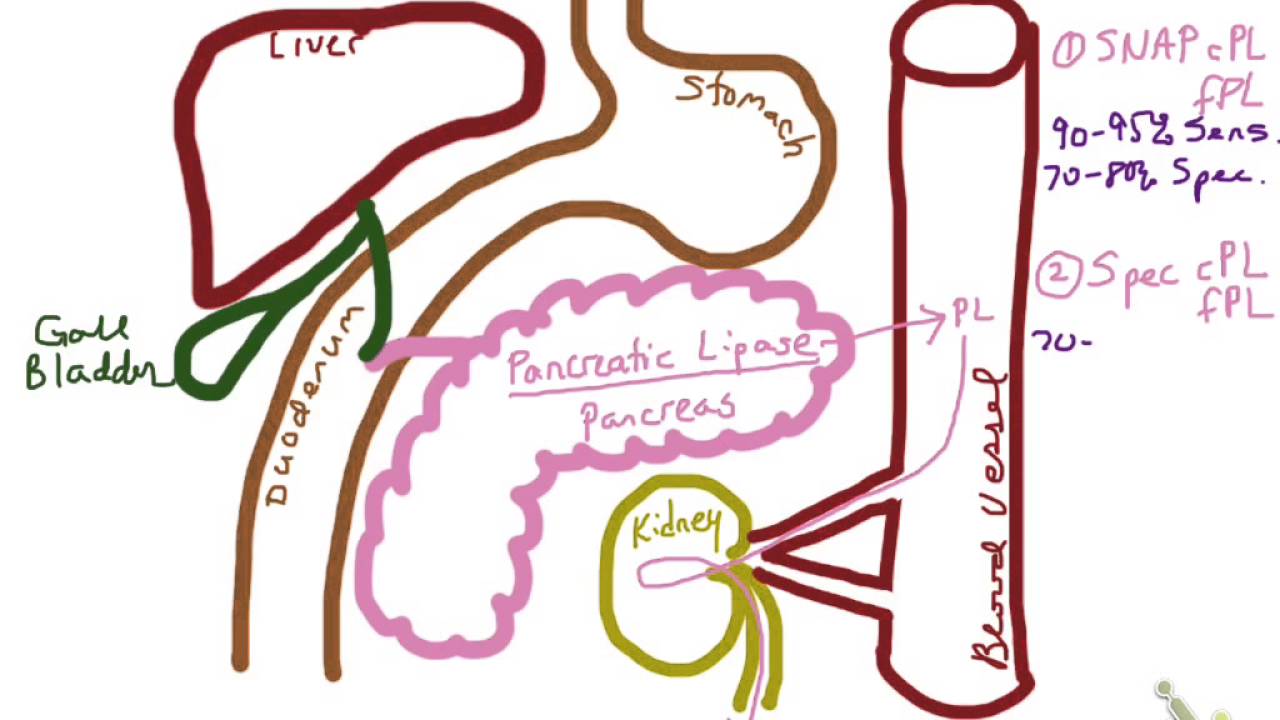 Liver
Stomach
Gall
Bladder
Duodenum
Pancreatic Lipase
Pancreas
Kidney
PL
Blood Vessel
① SNAP cPL
fPL
90-95% Sens.
70-80% Spec.
② Spec cPL
fPL
70-